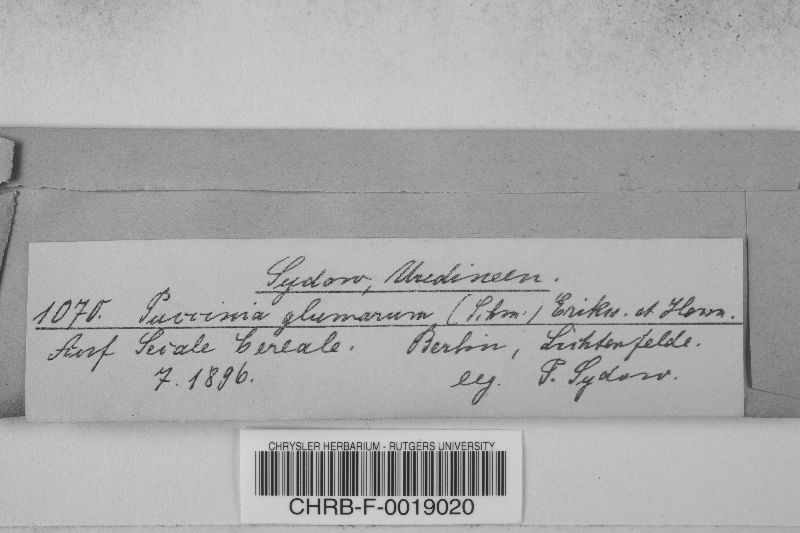 Sydow, Uredineen.
1075. Puccinia glumarum (Schm.) Erikss. et Henn.
Auf Secale Cereale. Berlin, Lichterfelde.
7. 1896. leg. P. Sydow.
CHRYSLER HERBARIUM - RUTGERS UNIVERSITY
CHRB-F-0019020